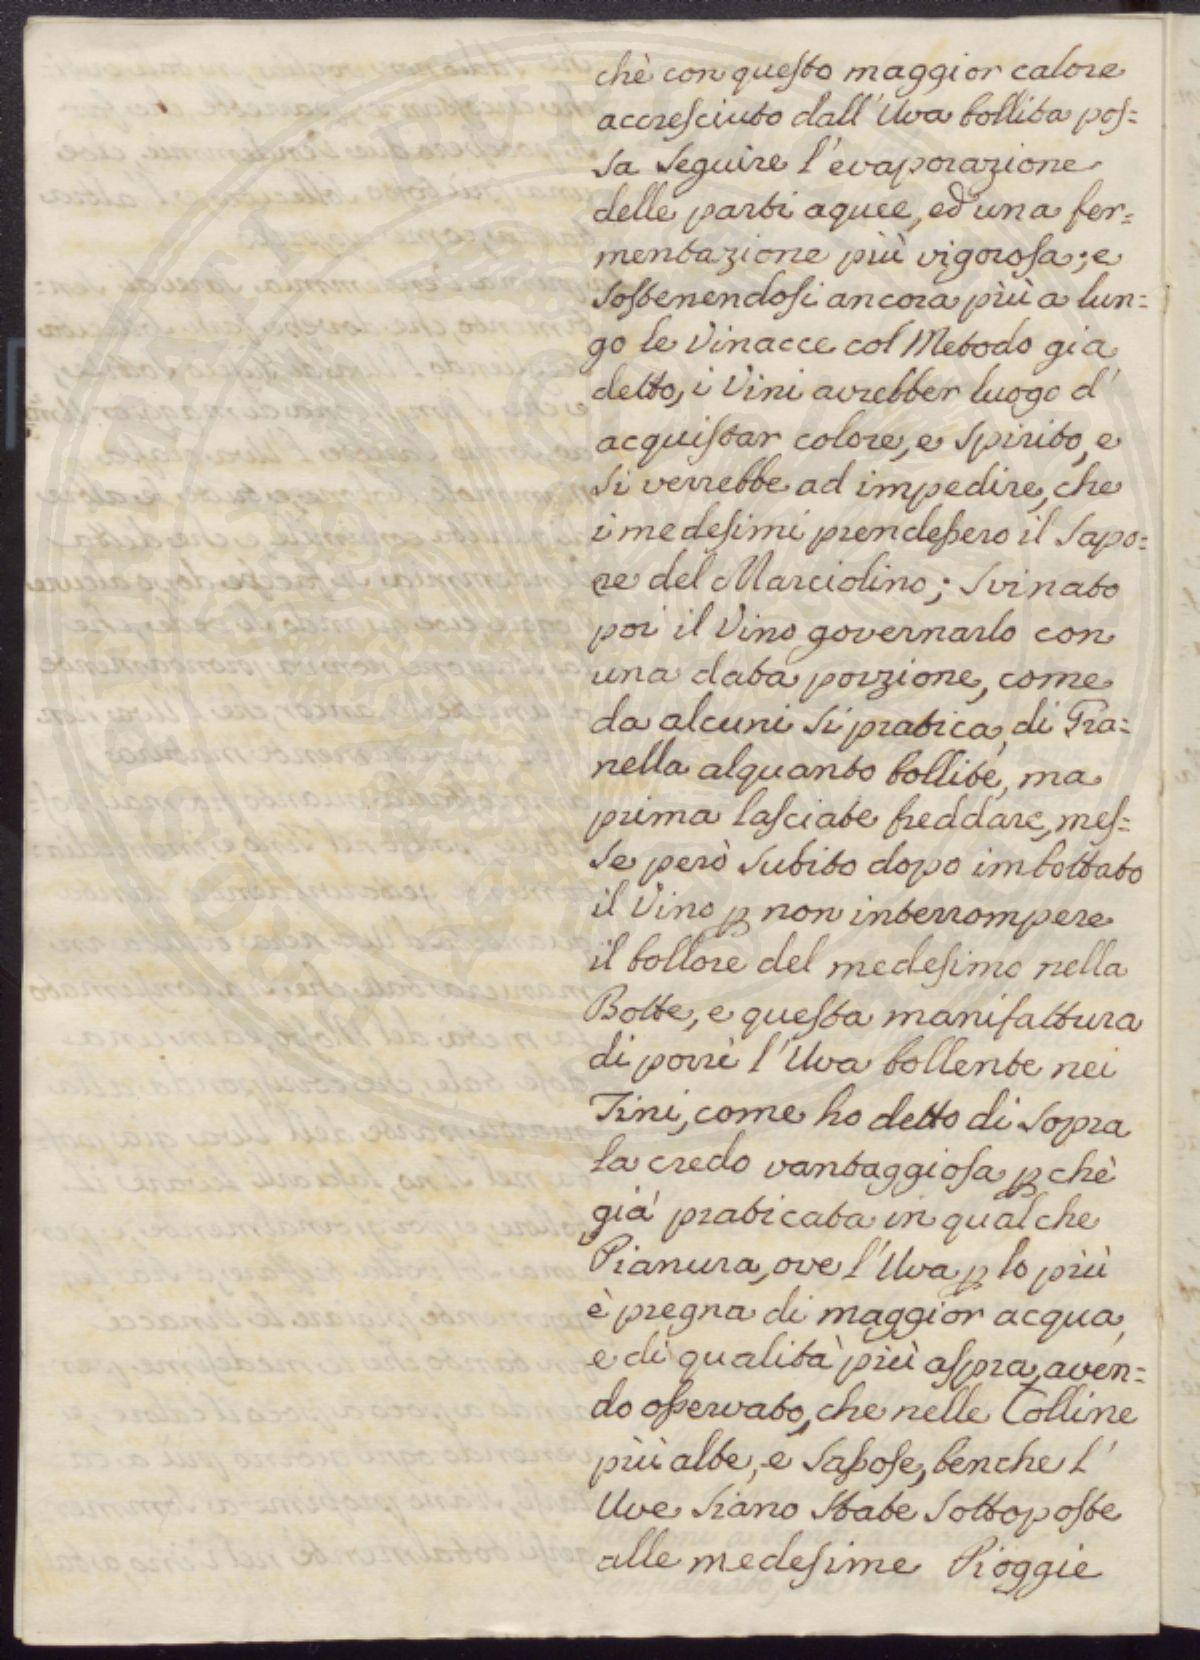 chè con questo maggior calore
accresciuto dall'Uva bollita pos=
sa seguire l'evaporazione
delle parti aquee, ed una fer=
mentazione più vigorosa; e
sostenendosi ancora più a lun=
go le Vinacce col Metodo già
detto, i Vini avrebber luogo d'
acquistar colore, e spirito, e
si verrebbe ad impedire, che
i medesimi prendessero il sapo=
re del Marciolino; svinato
poi il Vino governarlo con
una data porzione, come
da alcuni si pratica, di Tra=
nella alquanto bollite, ma
prima lasciate freddare, mes=
se però subito dopo imbottato
il Vino p non interrompere
il bollore del medesimo nella
Botte, e questa manifattura
di porre l'Uva bollente nei
Tini, come ho detto di sopra
la credo vantaggiosa pchè
già praticata in qualche
Pianura, ove l'Uva p lo più
è pregna di maggior acqua,
e di qualità più aspra, aven=
do osservato, che nelle Colline
più alte, e sassose, benche l'
Uve siano state sottoposte
alle medesime Pioggie